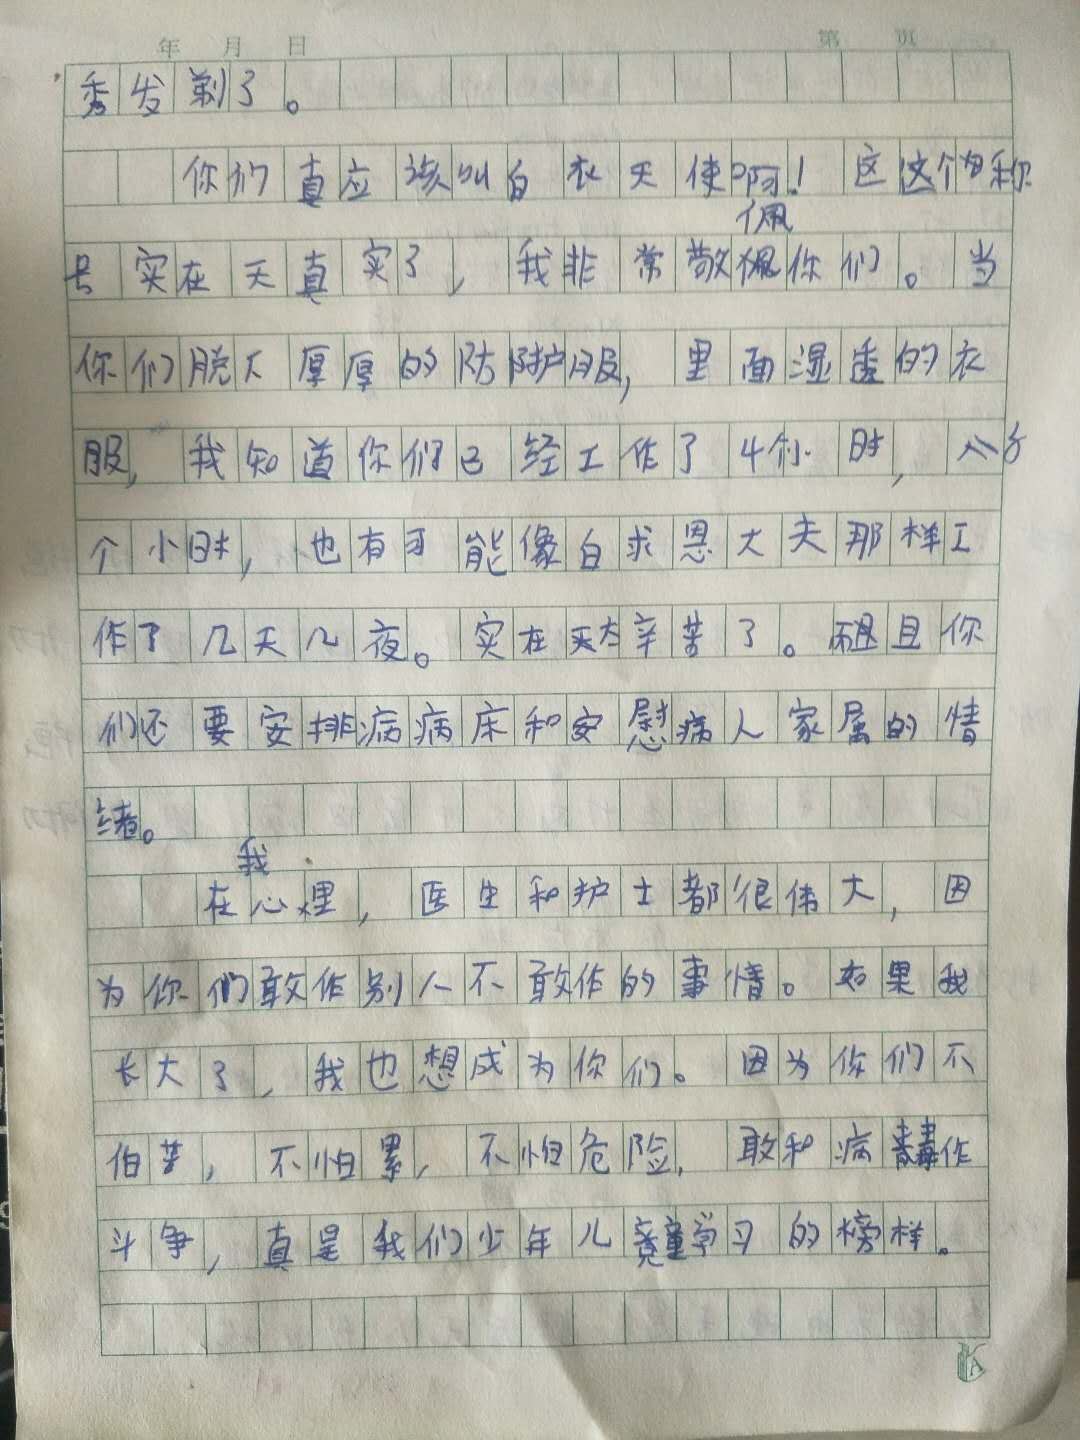 年 月 日 第 页
秀发剃了。
你们真应该叫白衣天使啊！这这个称
佩
号实在天真实了，我非常敬佩你们。当
你们脱下厚厚的防护服，里面湿透的衣
服，我知道你们已经工作了4个小时，八
个小时，也有可能像白求恩大夫那样工
作了几天几夜。实在太辛苦了。而且你
们还要安排病病床和安慰病人家属的情
绪。
我
在心里，医生和护士都很伟大，因
为你们敢作别人不敢作的事情。如果我
长大了，我也想成为你们。因为你们不
怕苦，不怕累，不怕危险，敢和病毒作
斗争，真是我们少年儿童学习的榜样。